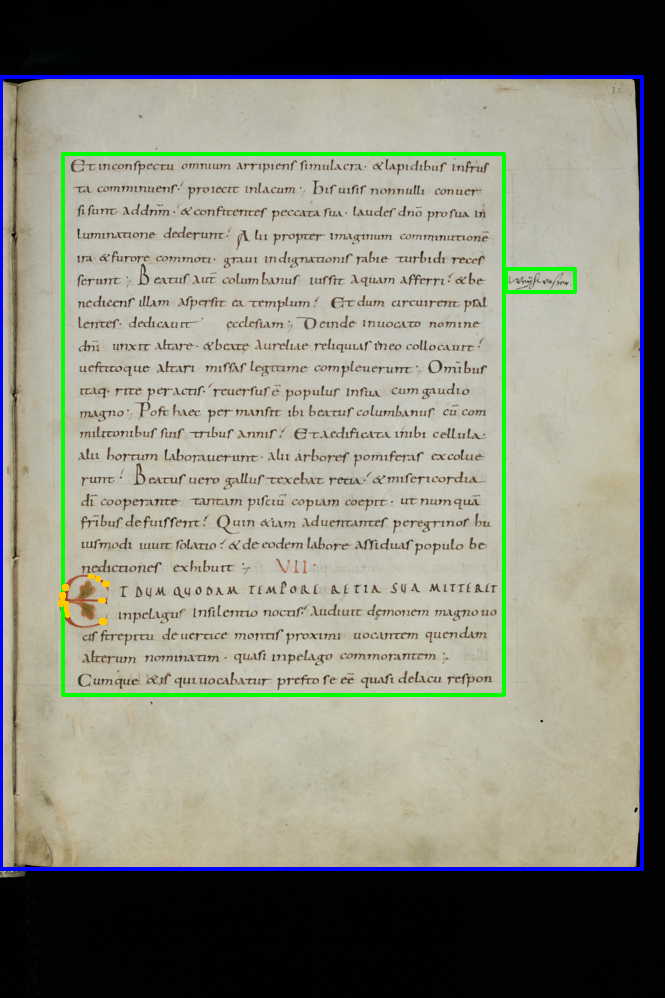 Et inconspectu omnium arripiens simulacra· & lapidibus infrus
ta comminuens·' proiecit inlacum·, His uisis nonnulli conuer
si sunt Addnm̅·' & confitentes peccata sua· laudes dnō pro sua in
luminatione dederunt·' Alii propter imaginum comminutionē
ira & furore commoti· graui indignationis rabie turbidi reces
serunt·, Beatus aut̄ columbanus iussit Aquam afferri·' & be
nedicens illam aspersit ea templum·' Et dum circuirent psal
lentes· dedicauit ecclesiam·, Deinde inuocato nomine
dn̄i unxit altare· & beate Aureliae reliquias ineo collocauit·'
uestitoque altari missas legitime compleuerunt·, Om̄ibus
itaq· rite peractis·' reuersus ē populus insua cum gaudio
magno· Post haec permansit ibi beatus columbanus cū com
militonibus suis tribus annis·' Et aedificata inibi cellula·
alii hortum laborauerunt· alii arbores pomiferas excolue
runt·' Beatus uero gallus texebat retia·' & misericordia
dī cooperante tantam pisciū copiam coepit· ut numquā
fr̄ibus defuissent·' Quin &iam Aduentantes peregrinos hu
iusmodi iuuit solatio·' & de eodem labore Assiduas populo be
nedictiones exhibuit·, VII·
ET DUM QUODAM TEMPORE RETIA SUA MITTERET
inpelagus Insilentio noctis·' Audiuit demonem magno uo
cis strepitu de uertice montis proximi uocantem quendam
alterum nominatim· quasi inpelago commorantem·,
Cumque &is qui uocabatur presto se eē quasi delacu respon